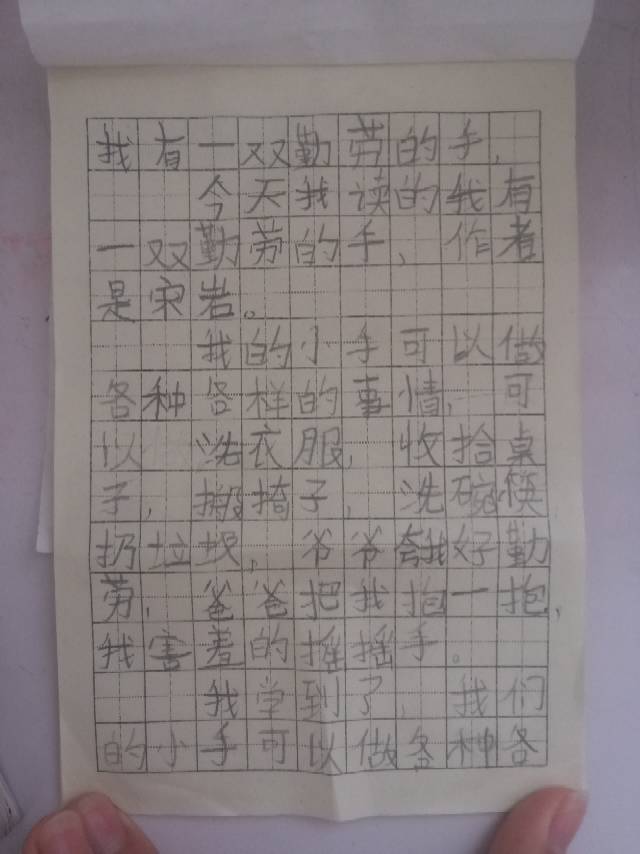 我有一双勤劳的手，
今天我读的我有
一双勤劳的手，作者
是宋岩。
我的小手可以做
各种各样的事情，可
以洗衣服，收拾桌
子，搬椅子，洗碗筷
扔垃圾，爷爷夸我好勤
劳，爸爸把我抱一抱，
我害羞的摇摇手。
我学到了，我们
的小手可以做各种各